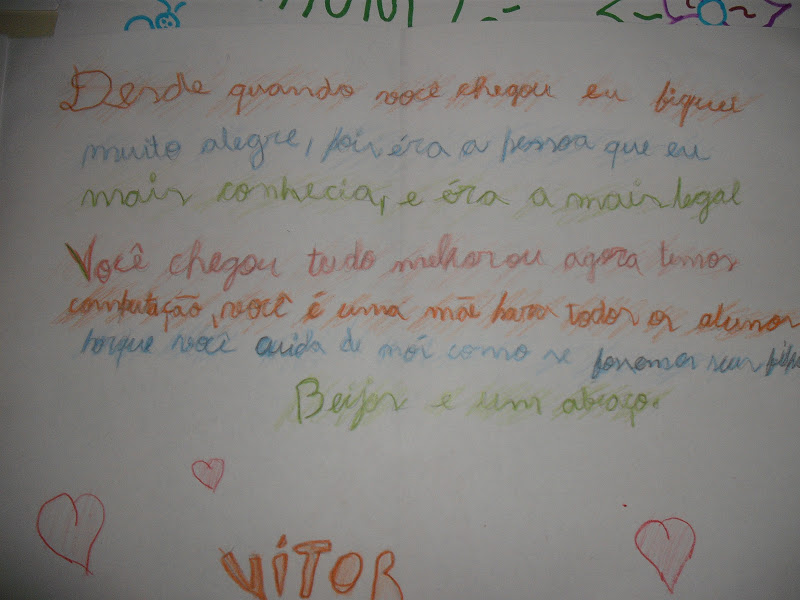 Desde quando você chegou eu fiquei
muito alegre, pois éra a pessoa que eu
mais conhecia, e éra a mais legal
Você chegou tudo melhorou agora temos
computação, você é uma mãe para todos os alunos
porque você cuida de nós como se fossemos seus
Beijos e um abraço.
VITOR